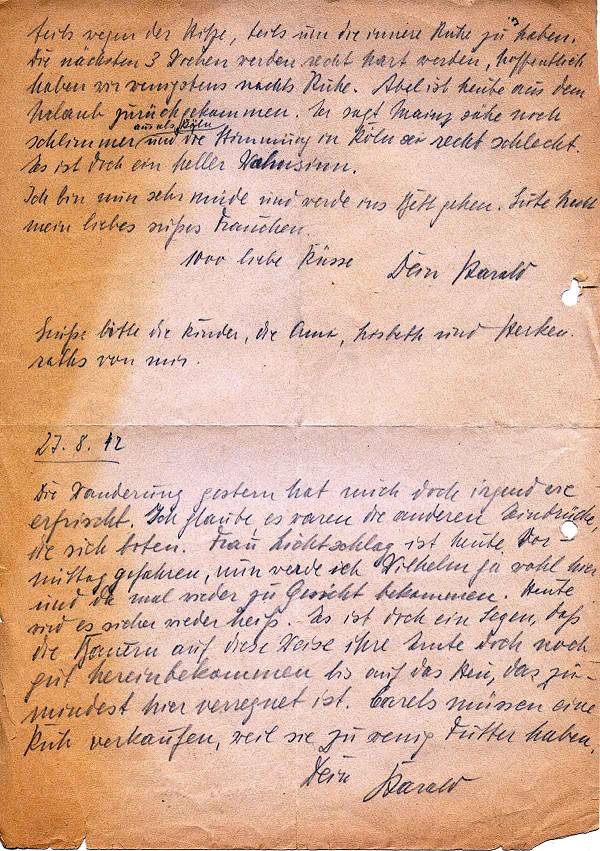 teils wegen der Hitze, teils um die innere Ruhe zu haben.
Die nächsten 3 Wochen werden recht hart werden, hoffentlich
haben wir wenigstens nachts Ruhe. Abel ist heute aus dem
Urlaub zurückgekommen. Er sagt Mainz sähe noch
aus als Köln
schlimmer und die Stimmung in Köln sei recht schlecht.
Es ist doch ein heller Wahnsinn.
Ich bin nun sehr müde und werde ins Bett gehen. Gute Nacht
mein liebes süsses Frauchen.
1000 liebe Küsse Dein Harald
Grüße bitte die Kinder, die Oma, Lisbeth und Herken-
raths von mir.
27.8.42
Die Wanderung gestern hat mich doch irgendwie
erfrischt. Ich glaube es waren die anderen Eindrücke,
die sich boten. Frau Lichtschlag ist heute Vor-
mittag gefahren, nun werde ich Wilhelm ja wohl hier
und da mal wieder zu Gesicht bekommen. Heute
wird es sicher wieder heiß. Es ist doch ein Segen, daß
die Bauern auf diese Weise ihre Ernte doch noch
gut hereinbekommen bis auf das Heu, das zu-
mindest hier verregnet ist. Carels müssen eine
Kuh verkaufen, weil sie zu wenig Futter haben.
Dein Harald